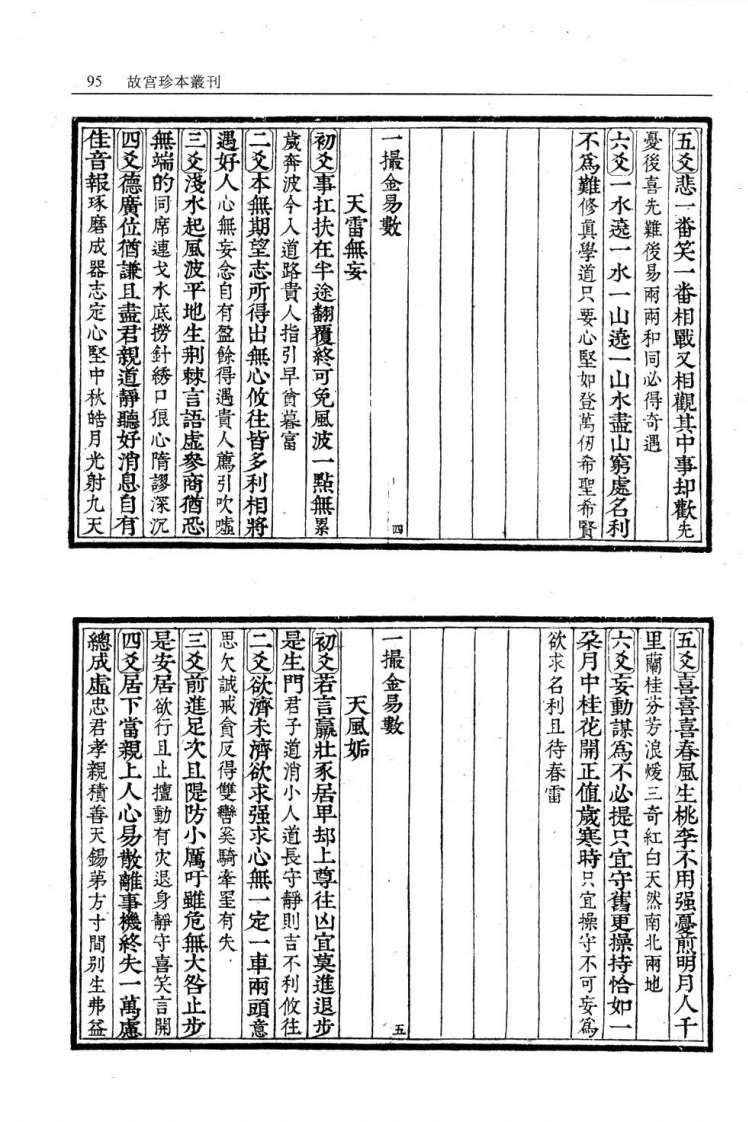 95 故宮珍本叢刊
五爻悲一番笑一番相戰又相觀其中事却歡先
憂後喜先難後易兩兩和同必得奇遇
六爻一水遶一水一山遶一山水盡山窮處名利
不爲難修眞學道只要心堅如登萬仞希聖希賢
一撮金易數
四
天雷無妄
初爻事扛扶在半途翻覆終可免風波一點無累
歲奔波今入道路貴人指引早貧暮富
二爻本無期望志所得出無心攸往皆多利相將
遇好人心無妄念自有盈餘得遇貴人薦引吹噓
三爻淺水起風波平地生荆棘言語虛參商猶恐
無端的同席連戈水底撈針綉口狠心隋謬深沉
四爻德廣位猶謙且盡君親道靜聽好消息自有
佳音報琢磨成器志定心堅中秋皓月光射九天
五爻喜喜喜春風生桃李不用强憂煎明月人千
里蘭桂芬芳浪煖三奇紅白天然南北兩地
六爻妄動謀爲不必提只宜守舊更操持恰如一
朶月中桂花開正值歲寒時只宜操守不可妄爲
欲求名利且待春雷
一撮金易數
五
天風姤
初爻若言羸壯豕居卑却上尊往凶宜莫進退步
是生門君子道消小人道長守靜則吉不利攸往
二爻欲濟未濟欲求强求心無一定一車兩頭意
思欠誠戒貪反得雙轡奚騎牽罣有失
三爻前進足次且隄防小厲吁雖危無大咎止步
是安居欲行且止擅動有灾退身靜守喜笑言開
四爻居下當親上人心易散離事機終失一萬慮
總成虛忠君孝親積善天錫苐方寸間别生弗益